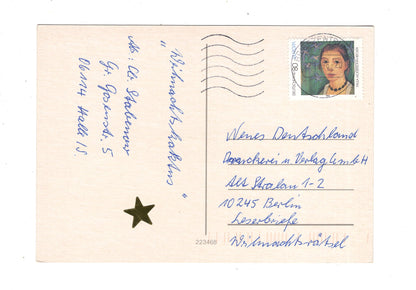 „Weihnachtskaktus“
Abs: Cl. Stabenow
Gr. Gosenstr. 5
06114 Halle/S.
Neues Deutschland
Druckerei u Verlag GmbH
Alt Stralau 1-2
10245 Berlin
Leserbriefe
Weihnachtsrätsel
223468